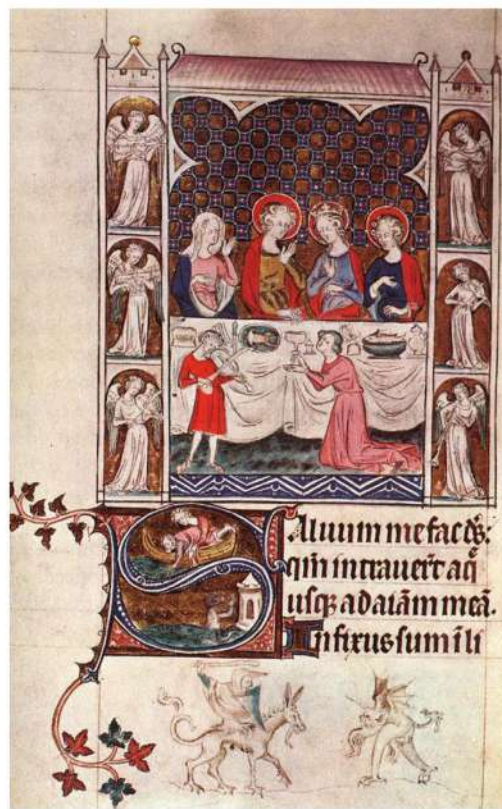 Saluum me fac d̅s:
qm̅ intrauer̅t aq̅
usq; ad aīam meā.
Infixus sum ī li